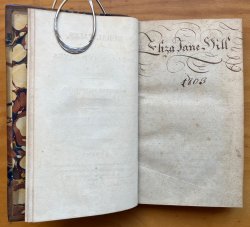 Eliza Jane Hill
1803